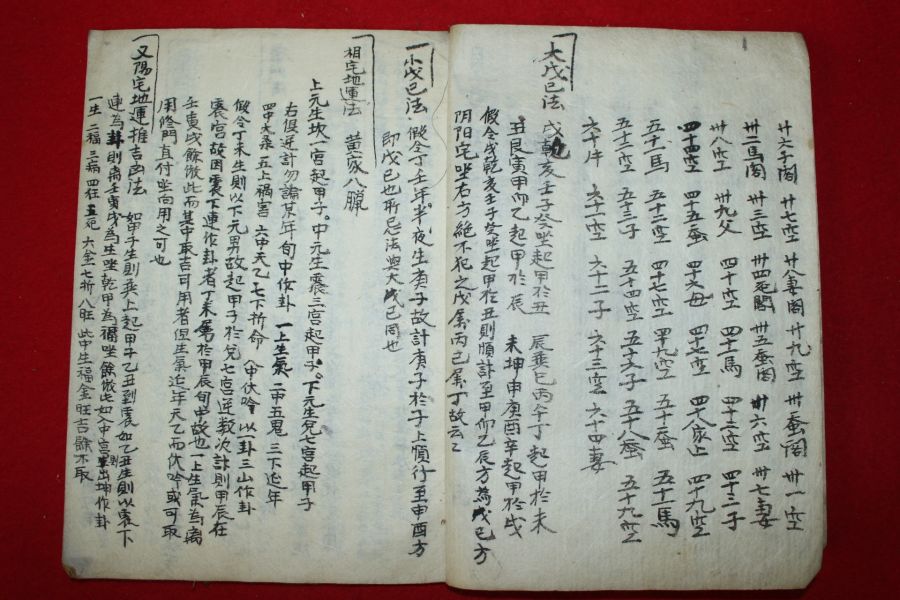 卄六子閣 卄七空 卄八妻閣 卄九空 卅蚕閣 卅一空
卅二馬閣 卅三空 卅四死閣 卅五蚕閣 卅六空 卅七妻
卅八空 卅九父 四十空 四十馬 四十二空 四十三子
四十四空 四十五蚕 四十六母 四十七空 四十八家上 四十九空
五十馬 五十二空 四十七空 四九空 五十蚕 五十一馬
五十二空 五十三子 五十四空 五十六子 五十八蚕 五十九空
六十牛 六十一空 六十二子 六十三空 六十四妻
大戊己法 戊乾亥壬子癸坐起甲於丑 辰巽巳丙午丁起甲於未
丑艮寅甲卯乙起甲於辰 未坤申庚酉辛起甲於戌
假令戌乾亥壬子癸坐起甲於丑則順計至甲卯乙辰方為戊己方
阴阳宅坐右方絶不犯之戊属丙己属丁故云云
一小戊己法 假令丁壬年半夜生庚子故計庚子於子上順行至申酉方
即戊己也所忌法與大戊己同也
相宅地運法 黄家八䐉
上元生坎一宫起甲子。中元生震三宫起甲子。下元生兌七宫起甲子
右俱逆計勿論某年旬中作卦 一上生氣 二中五鬼 三下延年
四中六杀 五上禍害 六中天乙 七下折命 八中伏吟 以卦三山作卦
假令丁未生則以下元男故起甲子於兌七宫逆数次計則甲辰在
震宫故因震下連作卦者丁未属於甲辰旬中故也一上生氣為离
壬寅戌餘倣此而其中取吉可用者但生氣延年天乙而伏吟或可取
用修門直付坐向用之可也
又陽宅地運推吉凶法 如甲子生則巽上起甲子乙丑到震如乙丑生則以震下
連為卦則离壬寅戌為生坐乾甲為福坐餘倣此如入中宫則出坤作卦
一生 二福 三病 四狂 五死 六金 七折 八旺 此中生福金旺吉餘不取